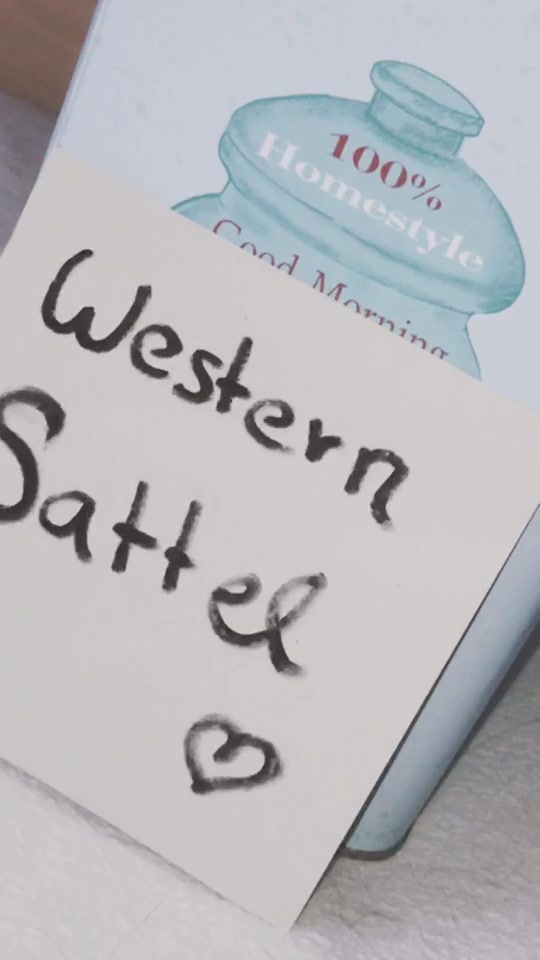 100%
Homestyle
Good Morning
Western
Sattel